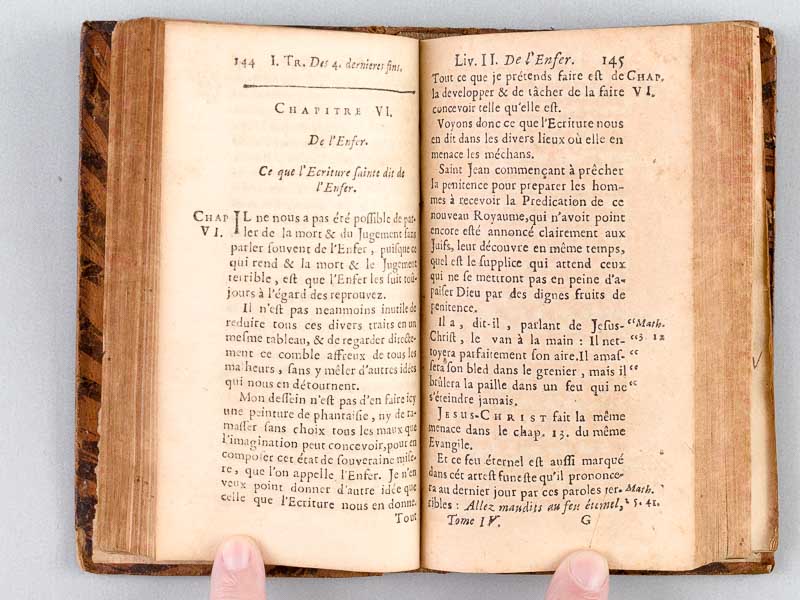 144 I. TR. Des 4. dernieres fins.
CHAPITRE VI.
De l'Enfer.
Ce que l'Ecriture sainte dit de
l'Enfer.
CHAP VI.
IL ne nous a pas été possible de par-
ler de la mort & du Jugement sans
parler souvent de l'Enfer, puisque ce
qui rend & la mort & le Jugement
terrible, est que l'Enfer les suit toû-
jours à l'égard des reprouvez.
Il n'est pas neanmoins inutile de
reduire tous ces divers traits en un
même tableau, & de regarder directe-
ment ce comble affreux de tous les
malheurs, sans y mêler d'autres idées
qui nous en détournent.
Mon dessein n'est pas d'en faire icy
une peinture de phantaisie, ny de ra-
masser sans choix tous les maux que
l'imagination peut concevoir, pour en
composer cet état de souveraine mise-
re, que l'on appelle l'Enfer. Je n'en
veux point donner d'autre idée que
celle que l'Ecriture nous en donne.
Tout
Liv. II. De l'Enfer. 145
CHAP. VI.
Tout ce que je prétends faire est de
la developper & de tâcher de la faire
concevoir telle qu'elle est.
Voyons donc ce que l'Ecriture nous
en dit dans les divers lieux où elle en
menace les méchans.
Saint Jean commençant à prêcher
la penitence pour preparer les hom-
mes à recevoir la Predication de ce
nouveau Royaume, qui n'avoit point
encore esté annoncé clairement aux
Juifs, leur découvre en même temps,
quel est le supplice qui attend ceux
qui ne se mettront pas en peine d'a-
paiser Dieu par des dignes fruits de
penitence.
Il a, dit-il, parlant de Jesus- “Math.
Christ, le van à la main : Il net- “3. 12
toyera parfaitement son aire. Il amas- “
sera son bled dans le grenier, mais il “
brûlera la paille dans un feu qui ne “
s'éteindre jamais.
JESUS-CHRIST fait la même
menace dans le chap. 13. du même
Evangile.
Et ce feu éternel est aussi marqué
dans cét arrest funeste qu'il prononce-
ra au dernier jour par ces paroles ter- Math.
ribles : Allez maudits au feu éternel, 5. 41.
Tome IV. G